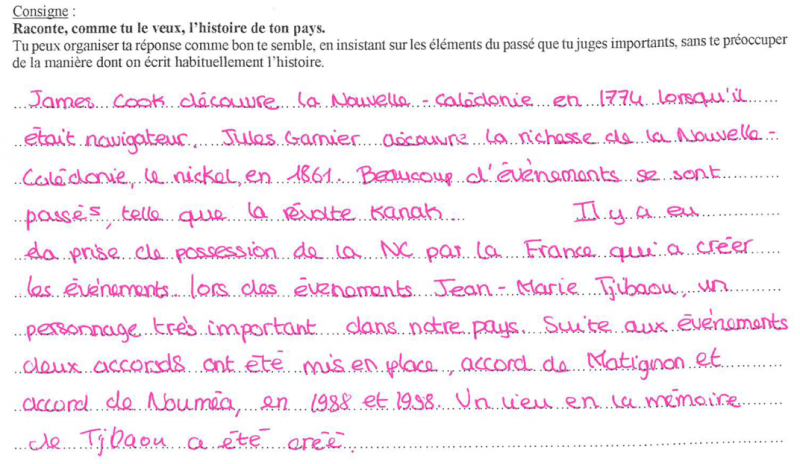 Consigne :
Raconte, comme tu le veux, l'histoire de ton pays.
Tu peux organiser ta réponse comme bon te semble, en insistant sur les éléments du passé que tu juges importants, sans te préoccuper
de la manière dont on écrit habituellement l'histoire.
James Cook découvre la Nouvelle - Calédonie en 1774 lorsqu'il
était navigateur. Jules Garnier découvre la richesse de la Nouvelle -
Calédonie, le nickel, en 1861. Beaucoup d'évènements se sont
passés, telle que la révolte Kanak Il y a eu
la prise de possession de la NC par la France qui a créer
les événements lors des évenements Jean - Marie Tjibaou, un
personnage très important dans notre pays. Suite aux événements
deux accords ont été mis en place, accord de Matignon et
accord de Nouméa, en 1988 et 1998. Un lieu en la mémoire
de Tjibaou a été creé.